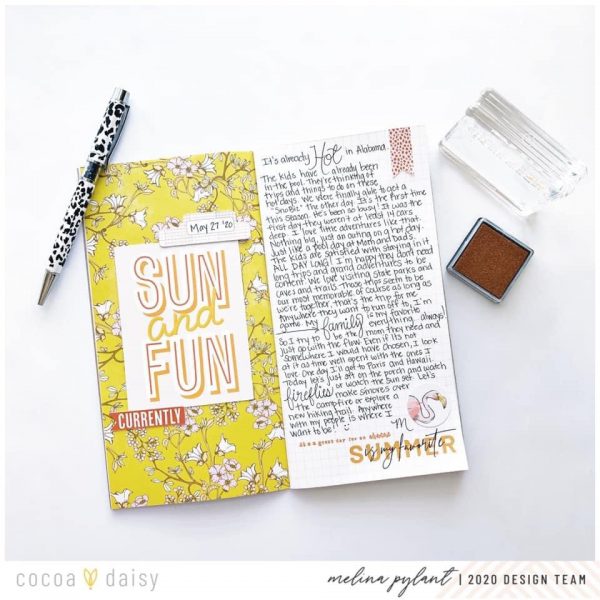 May 27 '20
SUN
and
FUN
CURRENTLY
It's already Hot in Alabama.
The kids have already been
in the pool. They're thinking of
trips and things to do on these
hot days. We were finally able to get a
"SnoBiz" the other day. It's the first time
this season. He's been so busy! It was the
first day they weren't at least 14 cars
deep. I love little adventures like that.
Nothing big, just an outing on a hot day.
Just like a pool day at Mom and Dad's.
The kids are satisfied with staying in it
ALL DAY LONG! I'm happy they don't need
long trips and grand adventures to be
content. We love visiting State parks and
caves and trails. Those trips seem to be
our most memorable. Of course as long as
we're together, that's the trip for me.
Anywhere they want to run off to, I'm
game. My family is my favorite
everything, always.
So I try to be the mom they need and
just go with the flow. Even if it's not
somewhere I would have chosen, I look
at it as time well spent with the ones I
love. One day I'll get to Paris and Hawaii.
Today let's just sit on the porch and watch
fireflies or watch the sun set. Let's
make s'mores over
the campfire or explore a
new hiking trail. Anywhere
with my people is where I
want to be!
M
it's a great day for an
SUMMER
is my favorite
cocoa daisy
melina pylant | 2020 DESIGN TEAM